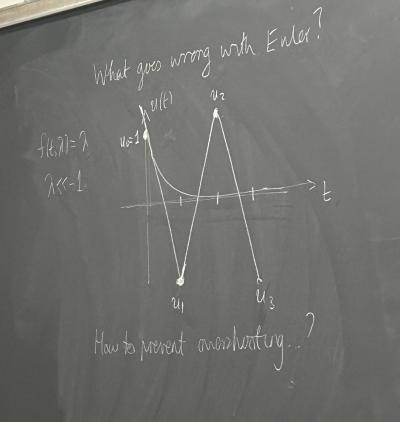 What goes wrong with Euler?
u(t)
u₂
u₀=1
f(t,λ)=λ
λ<<-1
t
u₁
u₃
How to prevent overshooting...?